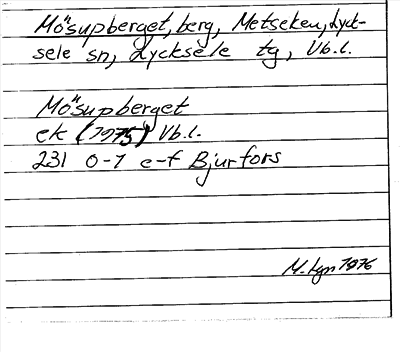 Mösupberget, berg, Metseken, Lyck-
sele sn, Lycksele tg, Vb.l.
Mösupberget
ek (1975) Vb.l.
231 0-1 e-f Bjurfors
1976